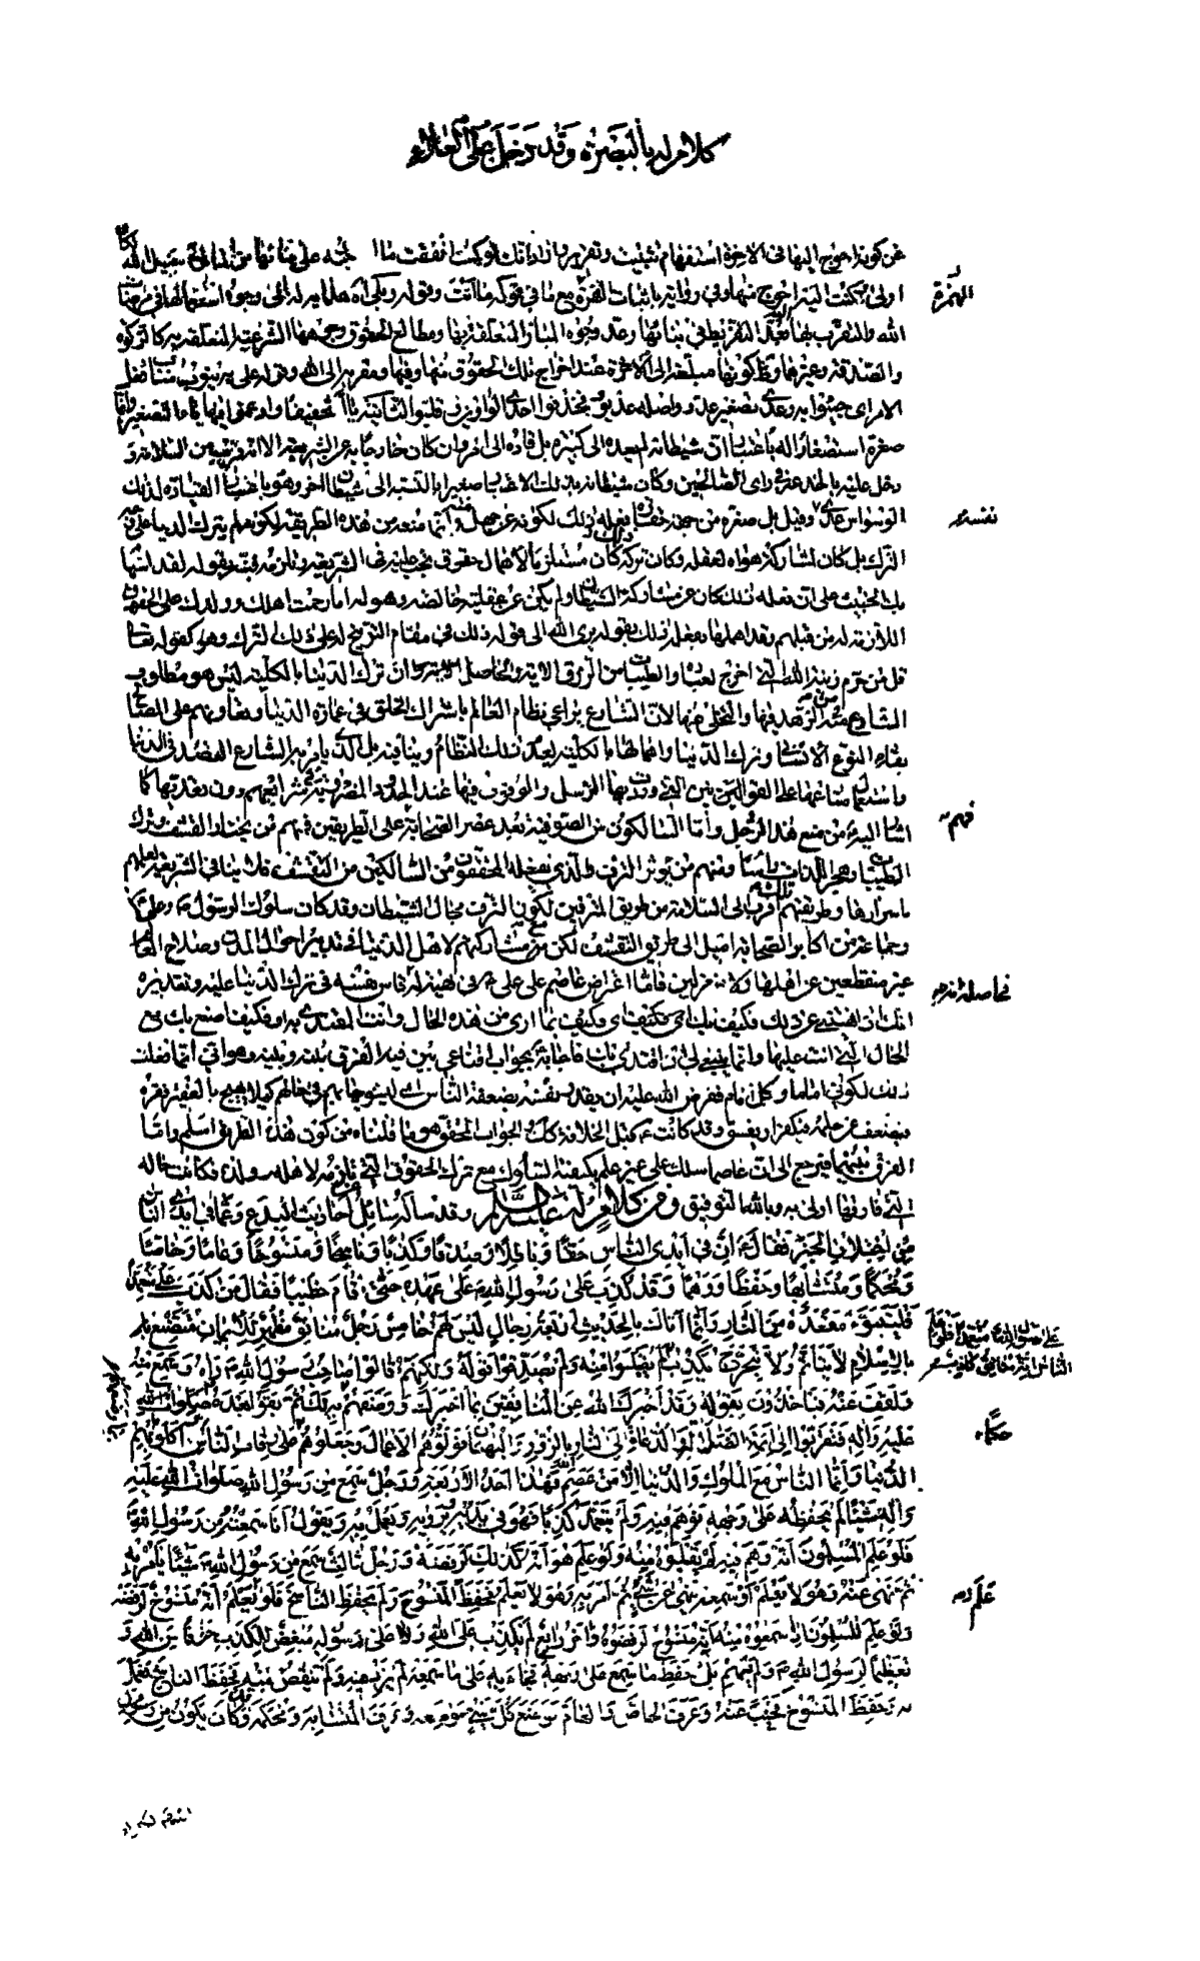 كلام له بالبصرة وقد دخل على العلاء
عن كونه احوج اليها في الاخرة استفهام تثبيت وتقرير انك لو كنت انفقت في سبيل الله
اولى كنت اليه احوج منها وفي رواية باثبات الهمزة مع ما في قوله ما انت وقوله وبلى ان هداية له الى وجوه استعمالها في مرضات
الهمزة
الله والتقرب بها بعد التفريط في بنائها وعد وجوه المبار المتعلقة بها ومطالع الحقوق وجوهها الشرعية المتعلقة به كالزكوة
والصدقة وغيرها وظ كونها مبلغة الى الاخرة عند اخراج تلك الحقوق منها وفيها ومقربة الى الله وقوله على به ينوب مناب فعل
الامر اى جيئوا به وعدى تصغير عدو واصله عديوو فحذفوا احدى الواوين وقلبوا الثانية ياء تخفيفا وادغموا فيها ياء التصغير وانما
صغره استصغارا له باعتبار ان شيطانه لم يعده الى كبيرة بل قاده الى امر وان كان خارجا به عن الشريعة الا انه قريب من السلامة و
دخل عليه بالخدعة في راى الصالحين وكان شيطانه بذلك الاعتبار صغيرا بالنسبة الى شيطان اخر وهو باعتبار القياده لذلك
الوسواس عدى وقيل بل صغره من جهة حقارة فعله ذلك لكونه عن جهل منه وانما منعه من هذه الطريقة لكونه لم يترك الدنيا على وجه
نفسه
الترك بل كان لمشاركة هواه لعقله وكان تركه ذلك مستلزما لاهمال حقوق تجب عليه في الشريعة وتلزمه فنبه بقوله لقد استهام
بك الخبيث على ان فعله ذلك كان عن مشاركة الشيطان ولم يكن عن عقلية خالصة وهو له اما رحمت اهلك وولدك على الحقوق
اللازمة له من قبلهم وقد اهملها بفعله ذلك بقوله يرى الله الى قوله ذلك في مقام التوبيخ له على ذلك الترك وهو كقوله تعالى
قل من حرم زينة الله التي اخرج لعباده والطيبات من الرزق الاية والحاصل ان ترك الدنيا بالكلية ليس هو مطلوب
الشارع من الزهد فيها والتخلي عنها لان الشارع يراعي نظام العالم باشتراك الخلق في عمارة الدنيا وتعاونهم على المصالح
بقاء النوع الانساني وترك الدنيا واهمالها بالكلية يهدم ذلك النظام وينافيه بل الذي يامر به الشارع القصد في الدنيا
واستعمال متاعها على القوانين التي وردت بها الرسل والوقوف فيها عند الحدود المضروبة في شرائعهم دون تعديها كما
اشار اليه من منع هذا الرجل واما السالكون من الصوفية بعد عصر الصحابة فعلى الطريقين فمنهم من يختار القشف وترك
فهم
الطيبات وهجر اللذات راسا ومنهم من يوثر الترف والذي يفعله المحققون من السالكين من التقشف فلا ينافي الشريعة لعلمهم
باسرارها وطريقتهم تلك اقرب الى السلامة من طريق المترفين لكون الترف مجال الشيطان وقد كان سلوك الرسول وعلى
وجماعة من اكابر الصحابة اميل الى طريق التقشف لكن مع مشاركتهم لاهل الدنيا في تدبير احوال المدن وصلاح العالم
غير منقطعين عن اهلها ولا منعزلين فاما اعتراض عاصم على على في نهيه له قياس نفسه في ترك الدنيا عليه وتقديره
فحاصله
انك اذا نهيتني عن ذلك فكيف بك اى فكيف بما ارى من هذه الحال وانت المقتدى به او فكيف اصنع بك مع
الحال التي انت عليها وانما ينبغي لي ان اقتدى بك فاجابه بجواب اقناعي بين فيه الفرق بينه وبينه وهو اني انما فعلت
ذلك لكوني اماما وكل امام فقد فرض الله عليه ان يقدر نفسه بضعفة الناس اى ليسويها بهم في حالهم كيلا يهيج بالفقير فقره
فيضعف عن حمله فيكفر او يفسق وقد كانت قبل الخلافة كذلك والجواب المحقق هو ما قلناه من كون هذه الطريق اسلم واما
الفرق بينهما فيرجع الى ان عاصما سلك على غير علم بكيفية السلوك مع ترك الحقوق التي تلزمه لاهله وولده فكانت حاله
التي فارقها اولى به وبالله التوفيق ومن كلام له عليه السلام وقد ساله سائل عن احاديث البدع وعما في ايدي الناس
من اختلاف الخبر فقال ان في ايدى الناس حقا وباطلا وصدقا وكذبا وناسخا ومنسوخا وعاما وخاصا
ومحكما ومتشابها وحفظا ووهما وقد كذب على رسول الله على عهده حتى قام خطيبا فقال من كذب على متعمدا
فليتبوء مقعده من النار وانما اتاك بالحديث اربعة رجال ليس لهم خامس رجل منافق مظهر للايمان متصنع
بالاسلام لا يتاثم ولا يتحرج يكذب
لم يقبلوا منه ولم يصدقوا قوله ولكنهم قالوا صاحب رسول الله راه وسمع منه
ولقف عنه فياخذون بقوله وقد اخبرك الله عن المنافقين بما اخبرك ووصفهم بما وصفهم به لك ثم بقوا بعده صلوات الله
عليه واله فتقربوا الى ائمة الضلالة والدعاة الى النار بالزور والبهتان فولوهم الاعمال وجعلوهم على رقاب الناس واكلوا بهم
حكاما
الدنيا وانما الناس مع الملوك والدنيا الا من عصم الله فهذا احد الاربعة ورجل سمع من رسول الله صلوات الله عليه
واله شيئا لم يحفظه على وجهه فوهم فيه ولم يتعمد كذبا فهو في يديه يرويه ويعمل به ويقول انا سمعته من رسول الله
فلو علم المسلمون انه وهم فيه لم يقبلوه منه ولو علم هو انه كذلك لرفضه ورجل ثالث سمع من رسول الله شيئا يامر به
ثم نهى عنه وهو لا يعلم او سمعه ينهى عن شيء ثم امر به وهو لا يعلم فحفظ المنسوخ ولم يحفظ الناسخ فلو يعلم انه منسوخ لرفضه
علم
ولو علم المسلمون اذ سمعوه منه انه منسوخ لرفضوه واخر رابع لم يكذب على الله ولا على رسوله مبغض للكذب خوفا من الله و
تعظيما لرسول الله ولم يهم بل حفظ ما سمع على وجهه فجاء به على ما سمعه لم يزد فيه ولم ينقص منه فحفظ الناسخ فعمل
به وحفظ المنسوخ فجنب عنه وعرف الخاص والعام فوضع كل شيء موضعه وعرف المتشابه ومحكمه وقد كان يكون من رسول